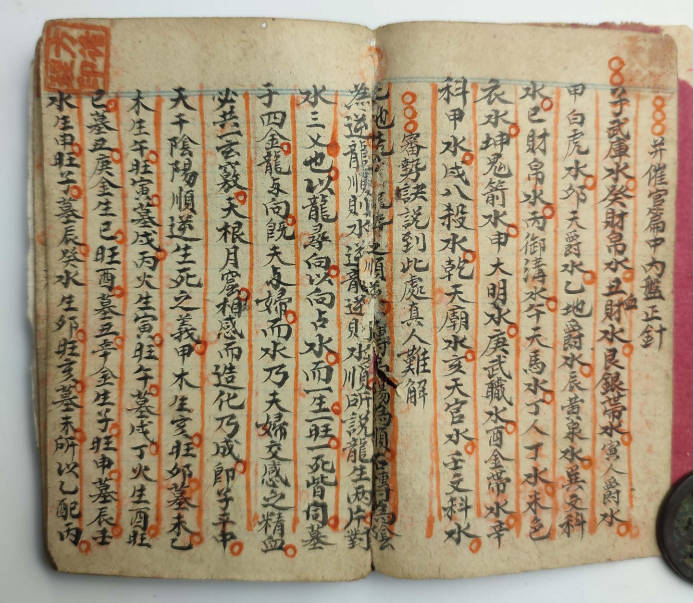 并催官篇中內盤正針
子武庫水癸財帛水丑財血水艮銀帶水寅人爵水
甲白虎水卯天爵水乙地爵水辰黃泉水巽文科
水巳財帛水丙御溝水午天馬水丁人丁水未色
衣水坤鬼箭水申大明水庚武職水酉金帶水辛
科甲水戌八殺水乾天廟水亥天官水壬文科水
審勢訣說到此處真人難解
為逆龍順則水逆龍逆則水順所說龍生兩片對
水三义也以龍尋向以向占水而一生一旺一死皆同墓
子四金龍与向既夫与婦而水乃夫婦交感之精血
必共一玄竅天根月窟相感而造化乃成即子平中
天干陰陽順逆生死之義甲木生亥旺卯墓未乙
木生午旺寅墓戌丙火生寅旺午墓戌丁火生酉旺
巳墓丑庚金生巳旺酉墓丑辛金生子旺申墓辰壬
水生申旺子墓辰癸水生卯旺亥墓未所以乙配丙